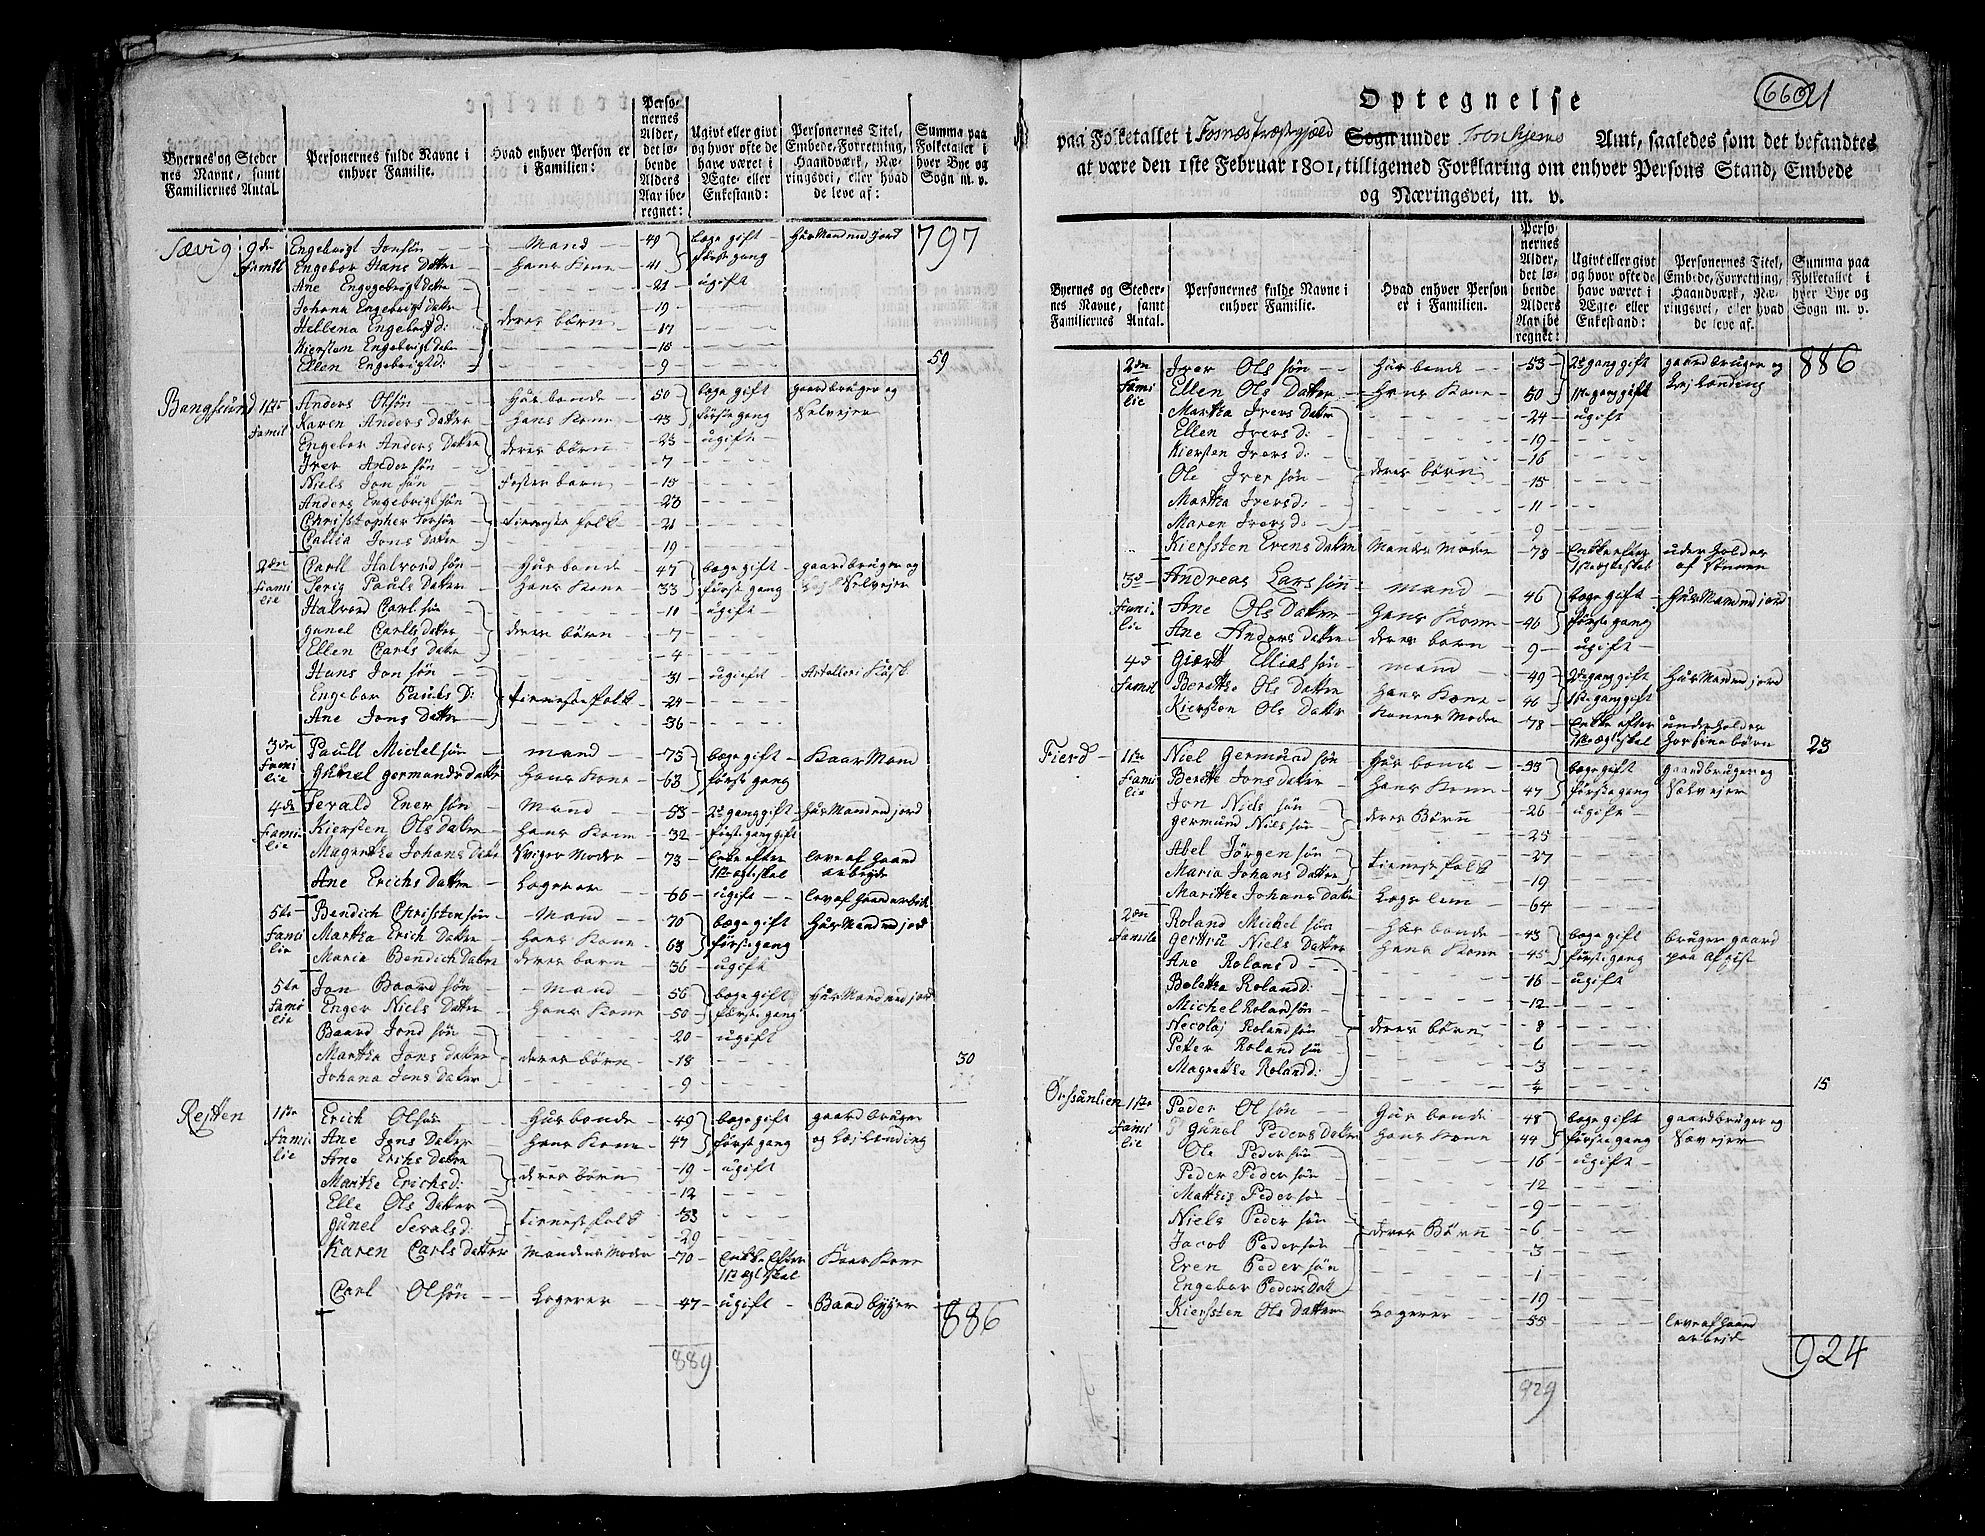 Byernes og Steder nes Navne, samt Familiernes Antal. | Personernes fulde Navne i enhver Familie. | Hvad enhver Person er i Familien: | Personernes Alder, det løbende Alders Aar iberegnet: | Ugivt eller givt og hvor ofte de have været i Ægte- eller Enkestand: | Personernes Titel, Embede, Forretning, Haandværk, Næringsvei, eller hvad de leve af: | Summa paa Folketallet i hver Bye og Sogn m. v.
Sævig 9de Famil Engebrigt Jonsøn Mand 49 bege gift Huusmand med Jord 797
Engebor Hans Datter Hans Kone 41 første gang
Ane Engegebrigt datter 21 ugift
Johana Engebrigt datter 19
Hellena Engebrigt D: deres børn 17
Kiersten Engebrigt dater 16
Ellen Engebrigtd: 9 59
Bangsund 1ste Famil Anders Olsøn Husbonde 50 bege gift gaardbruger og
Karen Anders datter Hans Kone 43 første gang Selvejer
Engebor Anders Datter deres børn 23 ugift
Iver Andersøn 7
Niels Jonsøn Foster barn 15
Anders Engebrigtsøn 23
Christopher Torsøn tienneste folk 21
Jons Datter 19
2den Familie Carll Halvordsøn Husbonde 47 bege gift gaardbruger og
Pauls Datter Hans Kone 33 første gang Selvejer
Halvord Carlsøn 10 ugift
gunel Carls datter deres børn 7
Ellen Carls dater 4
Hans Jonsøn 31 ugieft
Engebor Pauls D: tienneste folk 24
Ane Jons Datter 36
3de Familie Paull Michelsøn mand 75 bege gift Kaar Mand
gunel germands datter Hans Kone 63 første gang
4de Familie Enersøn Mand 53 2de gang gift Huusmand med jord
Kiersten Ols dater Hans Kone 32 første gang gift
Magrethe Johans Datter Sviger Moder 73 Enke efter leve af Haand
1ste ægteskel arbeyde
Ane Erichs Datter Logerer 66 ugift lev af Haand arbeid
5te Familie Bendich Christensøn Mand 70 bege gift Huusmand med jord
Martha Erich Datter Hans Kone 63 første gang
Maria Bendich Dater deres barn 36 ugift
5te Familie Jon Baardsøn Mand 56 bege gift Huusmand med jord
Enger Niels Datter Hans Kone 50 første gang
Baard Jondsøn 20 ugift
Martha Jons datter deres børn 18 30
Johana Jons Dater 9
Resten 1ste Familie Erich Olsøn Husbonde 49 bege gift gaardbruger
Ane Jons Datter Hans Kone 47 første gang og Lejlending
Ane Erichs Datter deres børn 19 ugift
Marthe Erichsd: 12
Elle Ols Datter tienneste folk 33
gunel d: 29
Karen Carls datter Mandens Moder 70 Enke Efter Kaar Kone
1ste ægteskal
Carl Olsøn Logerer 47 ugift Baad bygger 886
889
6601
Optegnelse
paa Folketallet i Fosnæs Præstegjæld Sogn under Tronhjems Amt, saaledes som det befandtes
at være den 1ste Februar 1801, tilligemed Forklaring om enhver Persons Stand, Embede
og Næringsvei, m. v.
Byernes og Stedernes Navne, samt Familiernes Antal. | Personernes fulde Navne i enhver Familie. | Hvad enhver Person er i Familien. | Personernes Alder, det løbende Alders Aar ibe regnet: | Ugivt eller givt og hvor ofte de have været i Ægte- eller Enkestand: | Personernes Titel, Embede, Forretning, Haandværk, Næringsvei, eller hvad de leve af. | Summa paa Folketallet i hver Bye og Sogn m. v.
2den Familie Iver Olssøn Husbonde 53 2de gang gift gaardbruger og 886
Ellen Ols Datter Hans Kone 50 1ste gang gift Lejlending
Martha Ivers Dater 24 ugift
Ellen Ivers d: 19
Kiersten Ivers d: 16
Ole Iversøn deres børn 15
Martha Ivers d: 11
Maren Ivers d: 9
Kierssten Evens Datter Mandes Moder 78 Enke efter underholdes
1ste ægteskab af Sønnen
3de Familie Andreas Larssøn mand 46 bege gift Huusmand med jord
Ane Ols Datter Hans Kone 46 første gang
Ane Anders datter deres barn 9 ugift
4de Famil Giørt Elliassøn mand 49 2de gang gift Huusmand med jord
Berethe Ols Datter Hans Kone 46 1ste gang gift
Kiersten Ols Datter Konens Moder 78 Enke efter underholdes
1ste ægteskel
Fierd 1ste Familie Niel Germundsøn Husbonde 53 bege gift gaardbruger og 23
Berethe Jons dater Hans Kone 47 første gang Selvejer
Jon Nielssøn deres Børn 26 ugift
Germund Nielssøn 25
Abel Jørgensøn tienneste folk 27
Maria Johans Datter 19
Marithe Johans Datter Logslem 64
2den Familie Roland Michelsøn Husbonde 43 bege gift bruger gaard
Gertru Niels Datter Hans Kone 45 første gang paa
Ane Rolansd 16 ugift
Beletha Rolandd: 12
Michel Rolandsøn 8
Necolaj Rolandsøn deres børn 6
Petter Rolandsøn 3
Magrethe Rolandd: ¼ 15
1ste Familie Peder Olsøn Husbonde 48 bege gift gaardbruger og
Gunel Peders Datter Hans Kone 44 første gang Selvejer
Ole Pedersøn 16 ugift
Peder Pedersøn 12
Mathis Pedersøn 9
Niels Pedersøn deres Børn 6
Jacob Pedersøn 3
Eren Pedersøn 1
Engebor Peders Datt 19
Kierssten Ols Datter Logerer 55 leve af Haand
arbejde 924
929